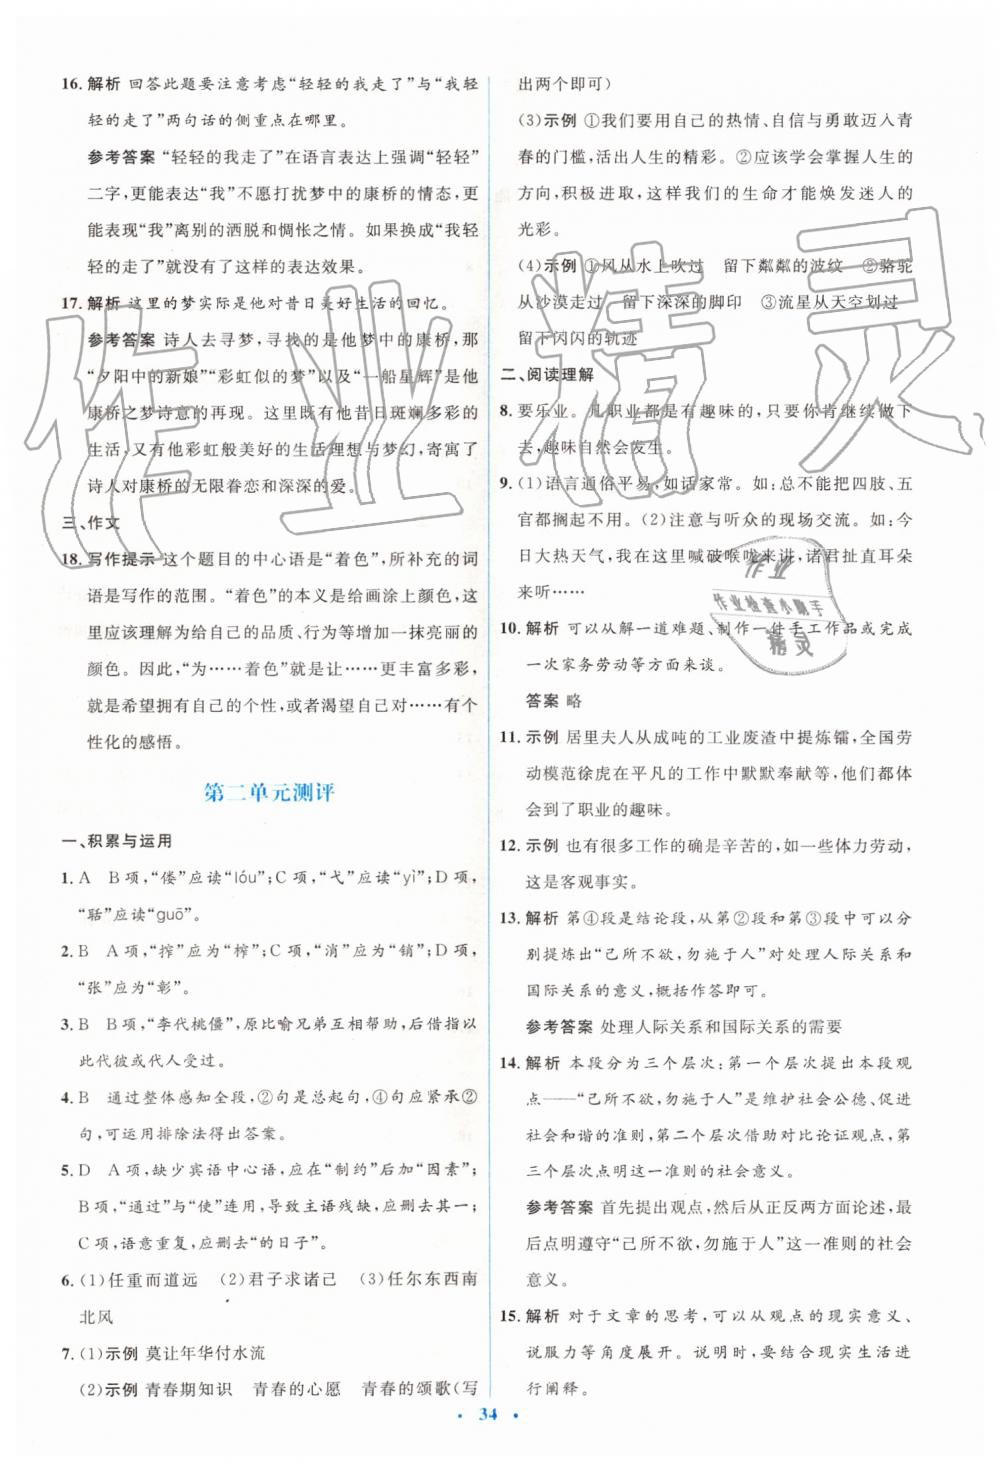 16. 解析 回答此题要注意考虑“轻轻的我走了”与“我轻
轻的走了”两句话的侧重点在哪里。
参考答案 “轻轻的我走了”在语言表达上强调“轻轻”
二字,更能表达“我”不愿打扰梦中的康桥的情态,更
能表现“我”离别的洒脱和惆怅之情。如果换成“我轻
轻的走了”就没有了这样的表达效果。
17. 解析 这里的梦实际是他对昔日美好生活的回忆。
参考答案 诗人去寻梦,寻找的是他梦中的康桥,那
“夕阳中的新娘”“彩虹似的梦”以及“一船星辉”是他
康桥之梦诗意的再现。这里既有他昔日斑斓多彩的
生活,又有他彩虹般美好的生活理想与梦幻,寄寓了
诗人对康桥的无限眷恋和深深的爱。
三、作文
18. 写作提示 这个题目的中心语是“着色”,所补充的词
语是写作的范围。“着色”的本义是给画涂上颜色,这
里应该理解为给自己的品质、行为等增加一抹亮丽的
颜色。因此,“为……着色”就是让……更丰富多彩,
就是希望拥有自己的个性,或者渴望自己对……有个
性化的感悟。
第二单元测评
一、积累与运用
1. A B项,“偻”应读“lóu”;C项,“弋”应读“yì”;D项,
“聒”应读“guō”。
2. B A项,“搾”应为“榨”;C项,“消”应为“销”;D项,
“张”应为“彰”。
3. B B项,“李代桃僵”,原比喻兄弟互相帮助,后借指以
此代彼或代人受过。
4. B 通过整体感知全段,②句是总起句,④句应紧承②
句,可运用排除法得出答案。
5. D A项,缺少宾语中心语,应在“制约”后加“因素”;
B项,“通过”与“使”连用,导致主语残缺,应删去其一;
C项,语意重复,应删去“的日子”。
6. (1)任重而道远 (2)君子求诸己 (3)任尔东西南
北风
7. (1)示例 莫让年华付水流
(2)示例 青春期知识 青春的心愿 青春的颂歌(写
出两个即可)
(3)示例 ①我们要用自己的热情、自信与勇敢迈入青
春的门槛,活出人生的精彩。②应该学会掌握人生的
方向,积极进取,这样我们的生命才能焕发迷人的
光彩。
(4)示例 ①风从水上吹过 留下粼粼的波纹 ②骆驼
从沙漠走过 留下深深的脚印 ③流星从天空划过
留下闪闪的轨迹
二、阅读理解
8. 要乐业。凡职业都是有趣味的,只要你肯继续做下
去,趣味自然会发生。
9. (1)语言通俗平易,如话家常。如:总不能把四肢、五
官都搁起不用。(2)注意与听众的现场交流。如:今
日大热天气,我在这里喊破喉咙来讲,诸君扯直耳朵
来听……
10. 解析 可以从解一道难题、制作一件手工作品或完成
一次家务劳动等方面来谈。
答案 略
11. 示例 居里夫人从成吨的工业废渣中提炼镭,全国劳
动模范徐虎在平凡的工作中默默奉献等,他们都体
会到了职业的趣味。
12. 示例 也有很多工作的确是辛苦的,如体力劳动,
这是客观事实。
13. 解析 第④段是结论段,从第②段和第③段中可以分
别提炼出“己所不欲,勿施于人”对处理人际关系和
国际关系的意义,概括作答即可。
参考答案 处理人际关系和国际关系的需要
14. 解析 本段分为三个层次:第一个层次提出本段观
点——“己所不欲,勿施于人”是维护社会公德、促进
社会和谐的准则,第二个层次借助对比论证观点,第
三个层次点明这一准则的社会意义。
参考答案 首先提出观点,然后从正反两方面论述,最
后点明遵守“己所不欲,勿施于人”这一准则的社会
意义。
15. 解析 对于文章的思考,可以从观点的现实意义、
说服力等角度展开。说明时,要结合现实生活进
行阐释。
34
作业精灵
作业
作业检查小助手
精灵